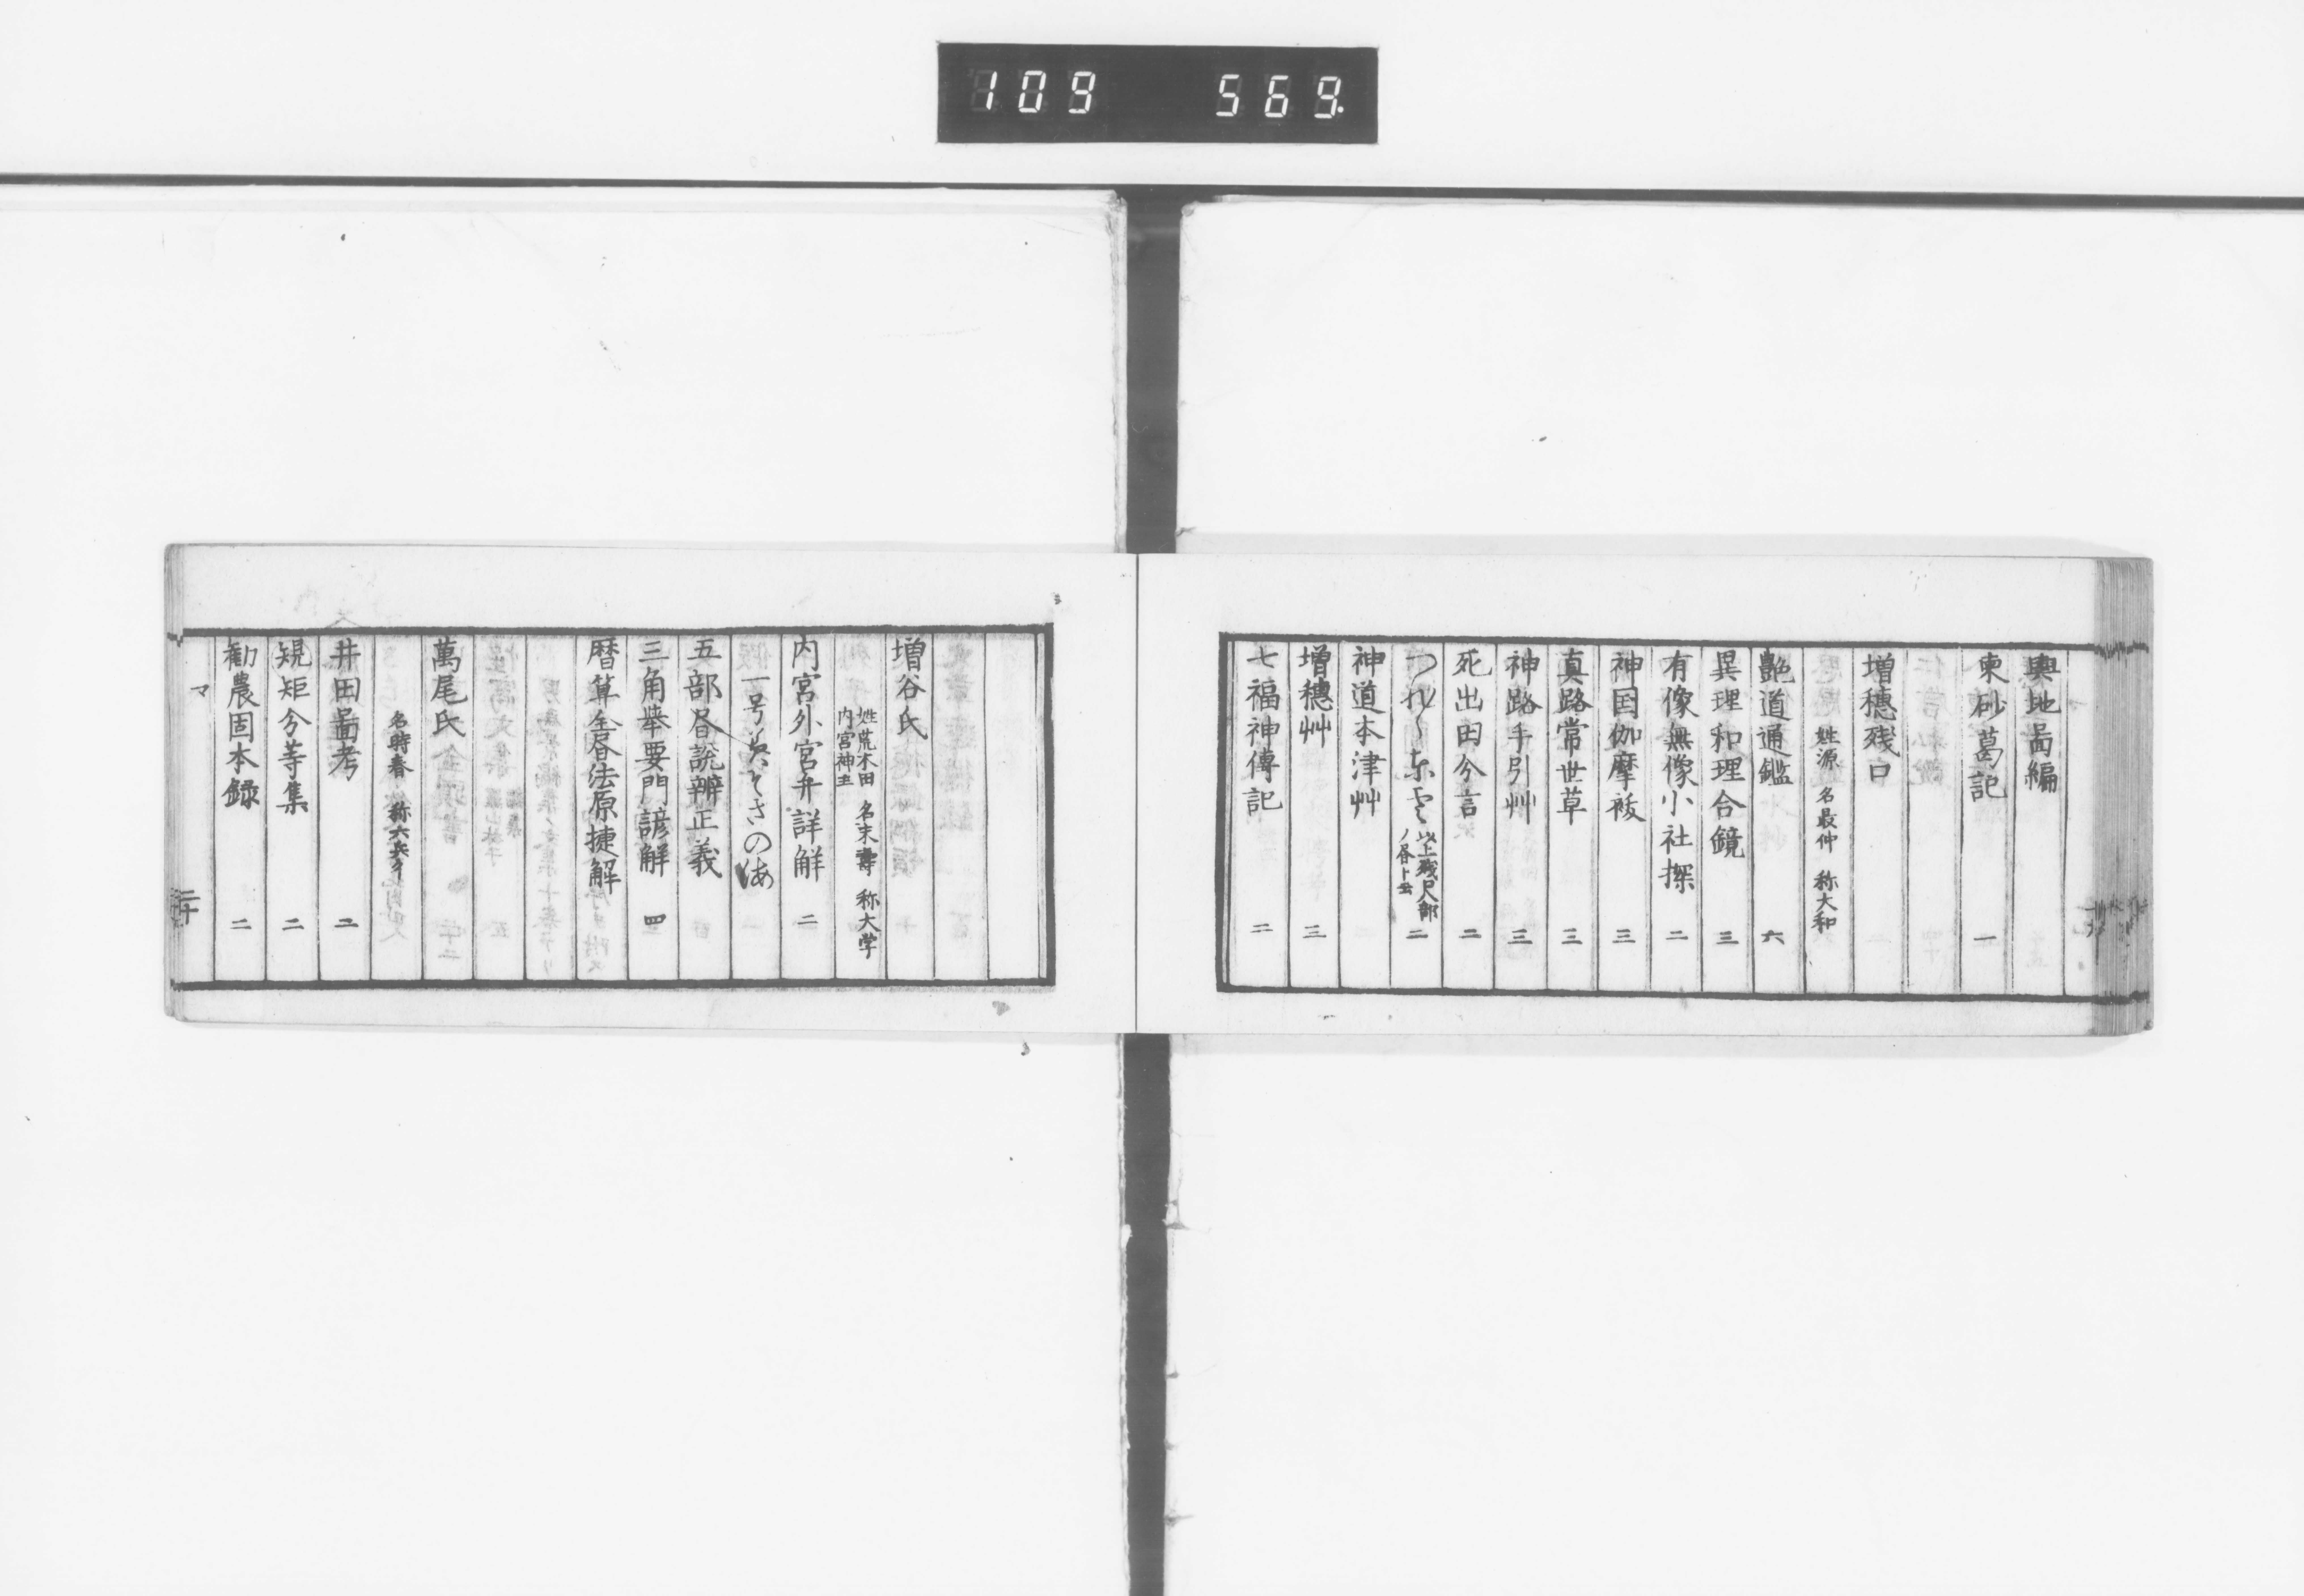 109 569.
輿地啚編
東砂葛記 一
増穗残口
姓源 名最仲 称大和
艶道通鑑 六
異理和理合鏡 三
有像無像小社探 二
神国伽摩祓 三
真路常世草 三
神路手引艸 三
死出田分言 二
つれ〳〵東雲 以上残口八部ノ書ト云 二
神道本津艸
増穗艸 三
七福神傳記 二
増谷氏
姓荒木田 名末壽 称大学
内宮神主
内宮外宮弁詳解 二
五部書說辨正義
三角擧要門諺解 四
暦算全書法原捷解
萬尾氏
名時春 称六兵衛
井田啚考 二
規矩分等集 二
勧農固本録 二
マ